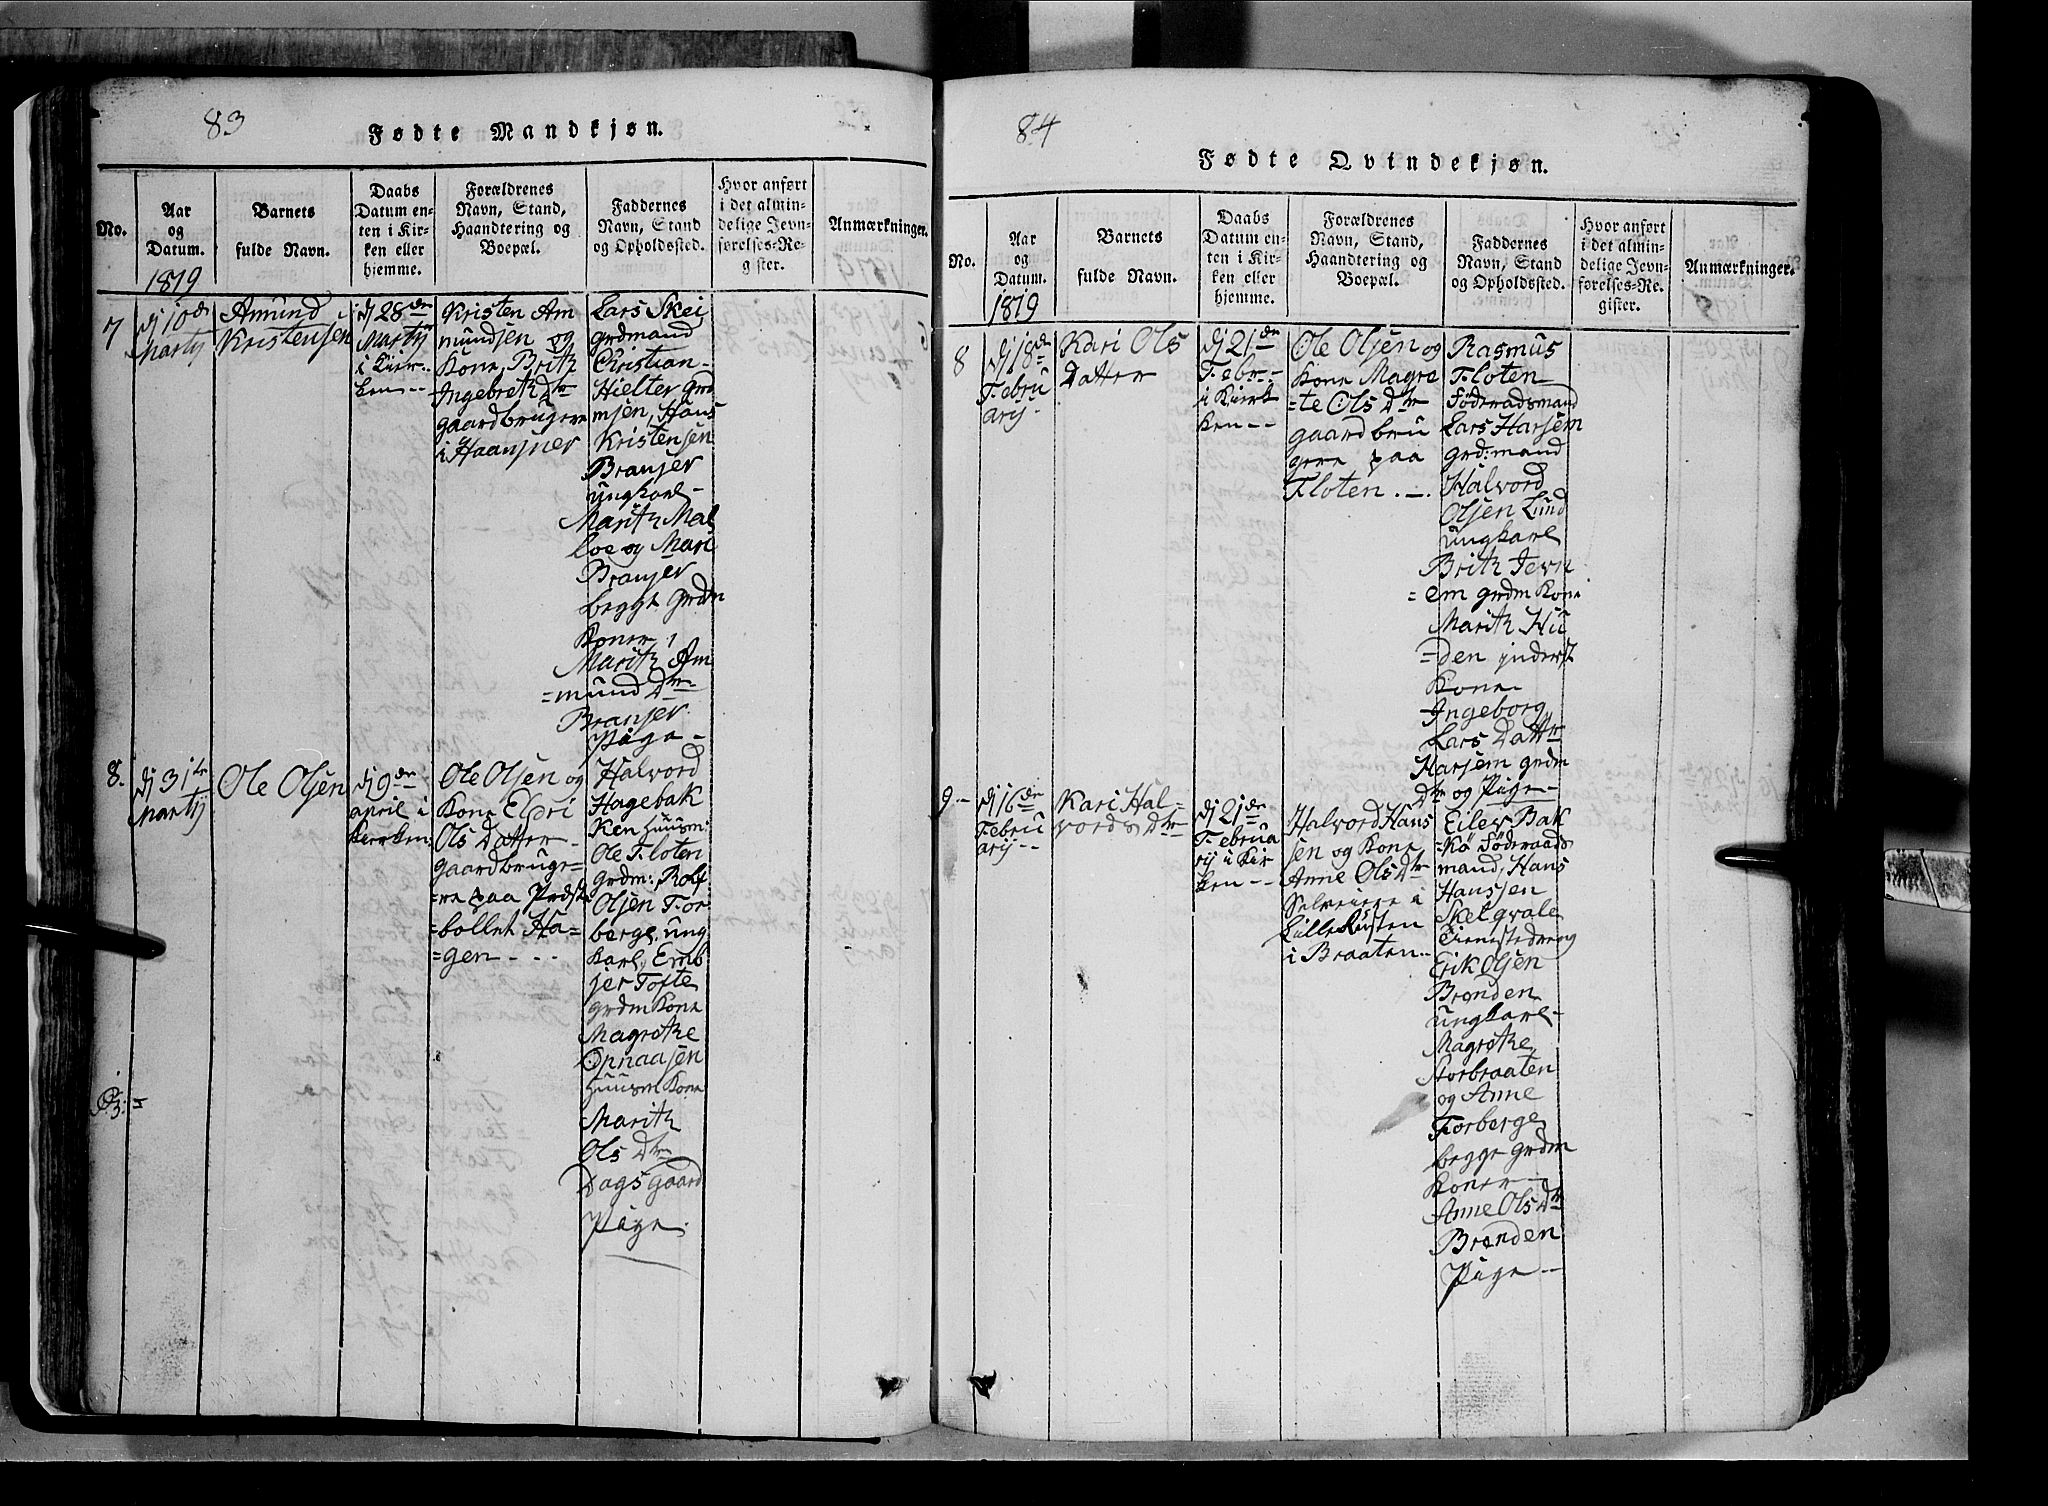 83
Fødte Mandkjøn.
No.
Aar
og
Datum.
1819
Barnets
fulde Navn.
Daabs
Datum en-
ten i Kir-
ken eller
hjemme.
Forældrenes
Navn, Stand,
Haandtering og
Boepæl.
Faddernes
Navn, Stand
og Opholdssted.
Hvor anført
i det almin-
delige Jevn-
førelses-Re-
gister.
Anmærkninger.
7
dj 10de
Martij
Amund
Kristensen
dj 28de
Martij
i Kier-
ken
Kristen Am
mundsen og
Kone Brith
Ingebreth Dtr
gaardbrugere
i HaansnER
Lars Skei
grdmand
Christian
Hielter grd
mjen, Hans
Kristensen
Branser
ungkarl
Marith Mal
loe og Mari
Branser
begge grdm
Koner
Marith Am
=mund Dtr
Branser
Pige
8.
dj 31te
Martij
Ole Olsen
dj 9de
april i
Kirken
Ole Olsen og
Kone Eldri
Ols Datter
gaardbruge-
re paa Prdst
=bollet Ha=
=gen
Halvord
Hagebak
ken Huusm:
Ole Floten
grdm: Rolf
Olsen For
berge, ung
karl, Emb
jer Tofte
grdm Kone
Magrethe
Opnaasen
Huusm Kone
Marith
Ols Dtr
Dagsgaard
Pige.
84
Fødte Qvindekjøn.
No.
Aar
og
Datum.
1819
Barnets
fulde Navn.
Daabs
Datum en-
ten i Kir-
ken eller
hjemme.
Forældrenes
Navn, Stand,
Haandtering og
Boepæl.
Faddernes
Navn, Stand
og Opholdssted.
Hvor anført
i det almin-
delige Jevn-
førelses-Re-
gister.
Anmærkninger.
8
dj 18de
Febru
arij
Kari Ols
Datter
dj 21de
Febr
i Kirk
ken
Ole Olsen og
Kone Magre
=te Ols Dtr
gaardbru
gere paa
Floten
Rasmus
Floten
Föderadsmand
Lars Harsem
grd:mand
Halvord
Olsen Lund
ungkarl
Brith Jevn
=em grdm Kone
Marith Hu
=den inderst
Kone
Ingeborg
Lars Datter
Harsem grdm
Dtr og Pige
9
dj 16de
Febru
arij
Kari Hal=
vords Dtr
dj 21de
Februa
rij i Kir
ken
Halvord Hans
sen og Kone
Anne Ols Dtr
Selveiere i
Lille Rusten
i Braaten
Eilev Bak
=kø Föderaads
mand, Hans
Hansen
Skelqvale
Tienistedreng
Erik Olsen
Brenden
ungkarl
Magrethe
Storbraaten
og Anne
Forberge
begge grdm
Koner
Anne Ols Dtr
Brenden
Pige